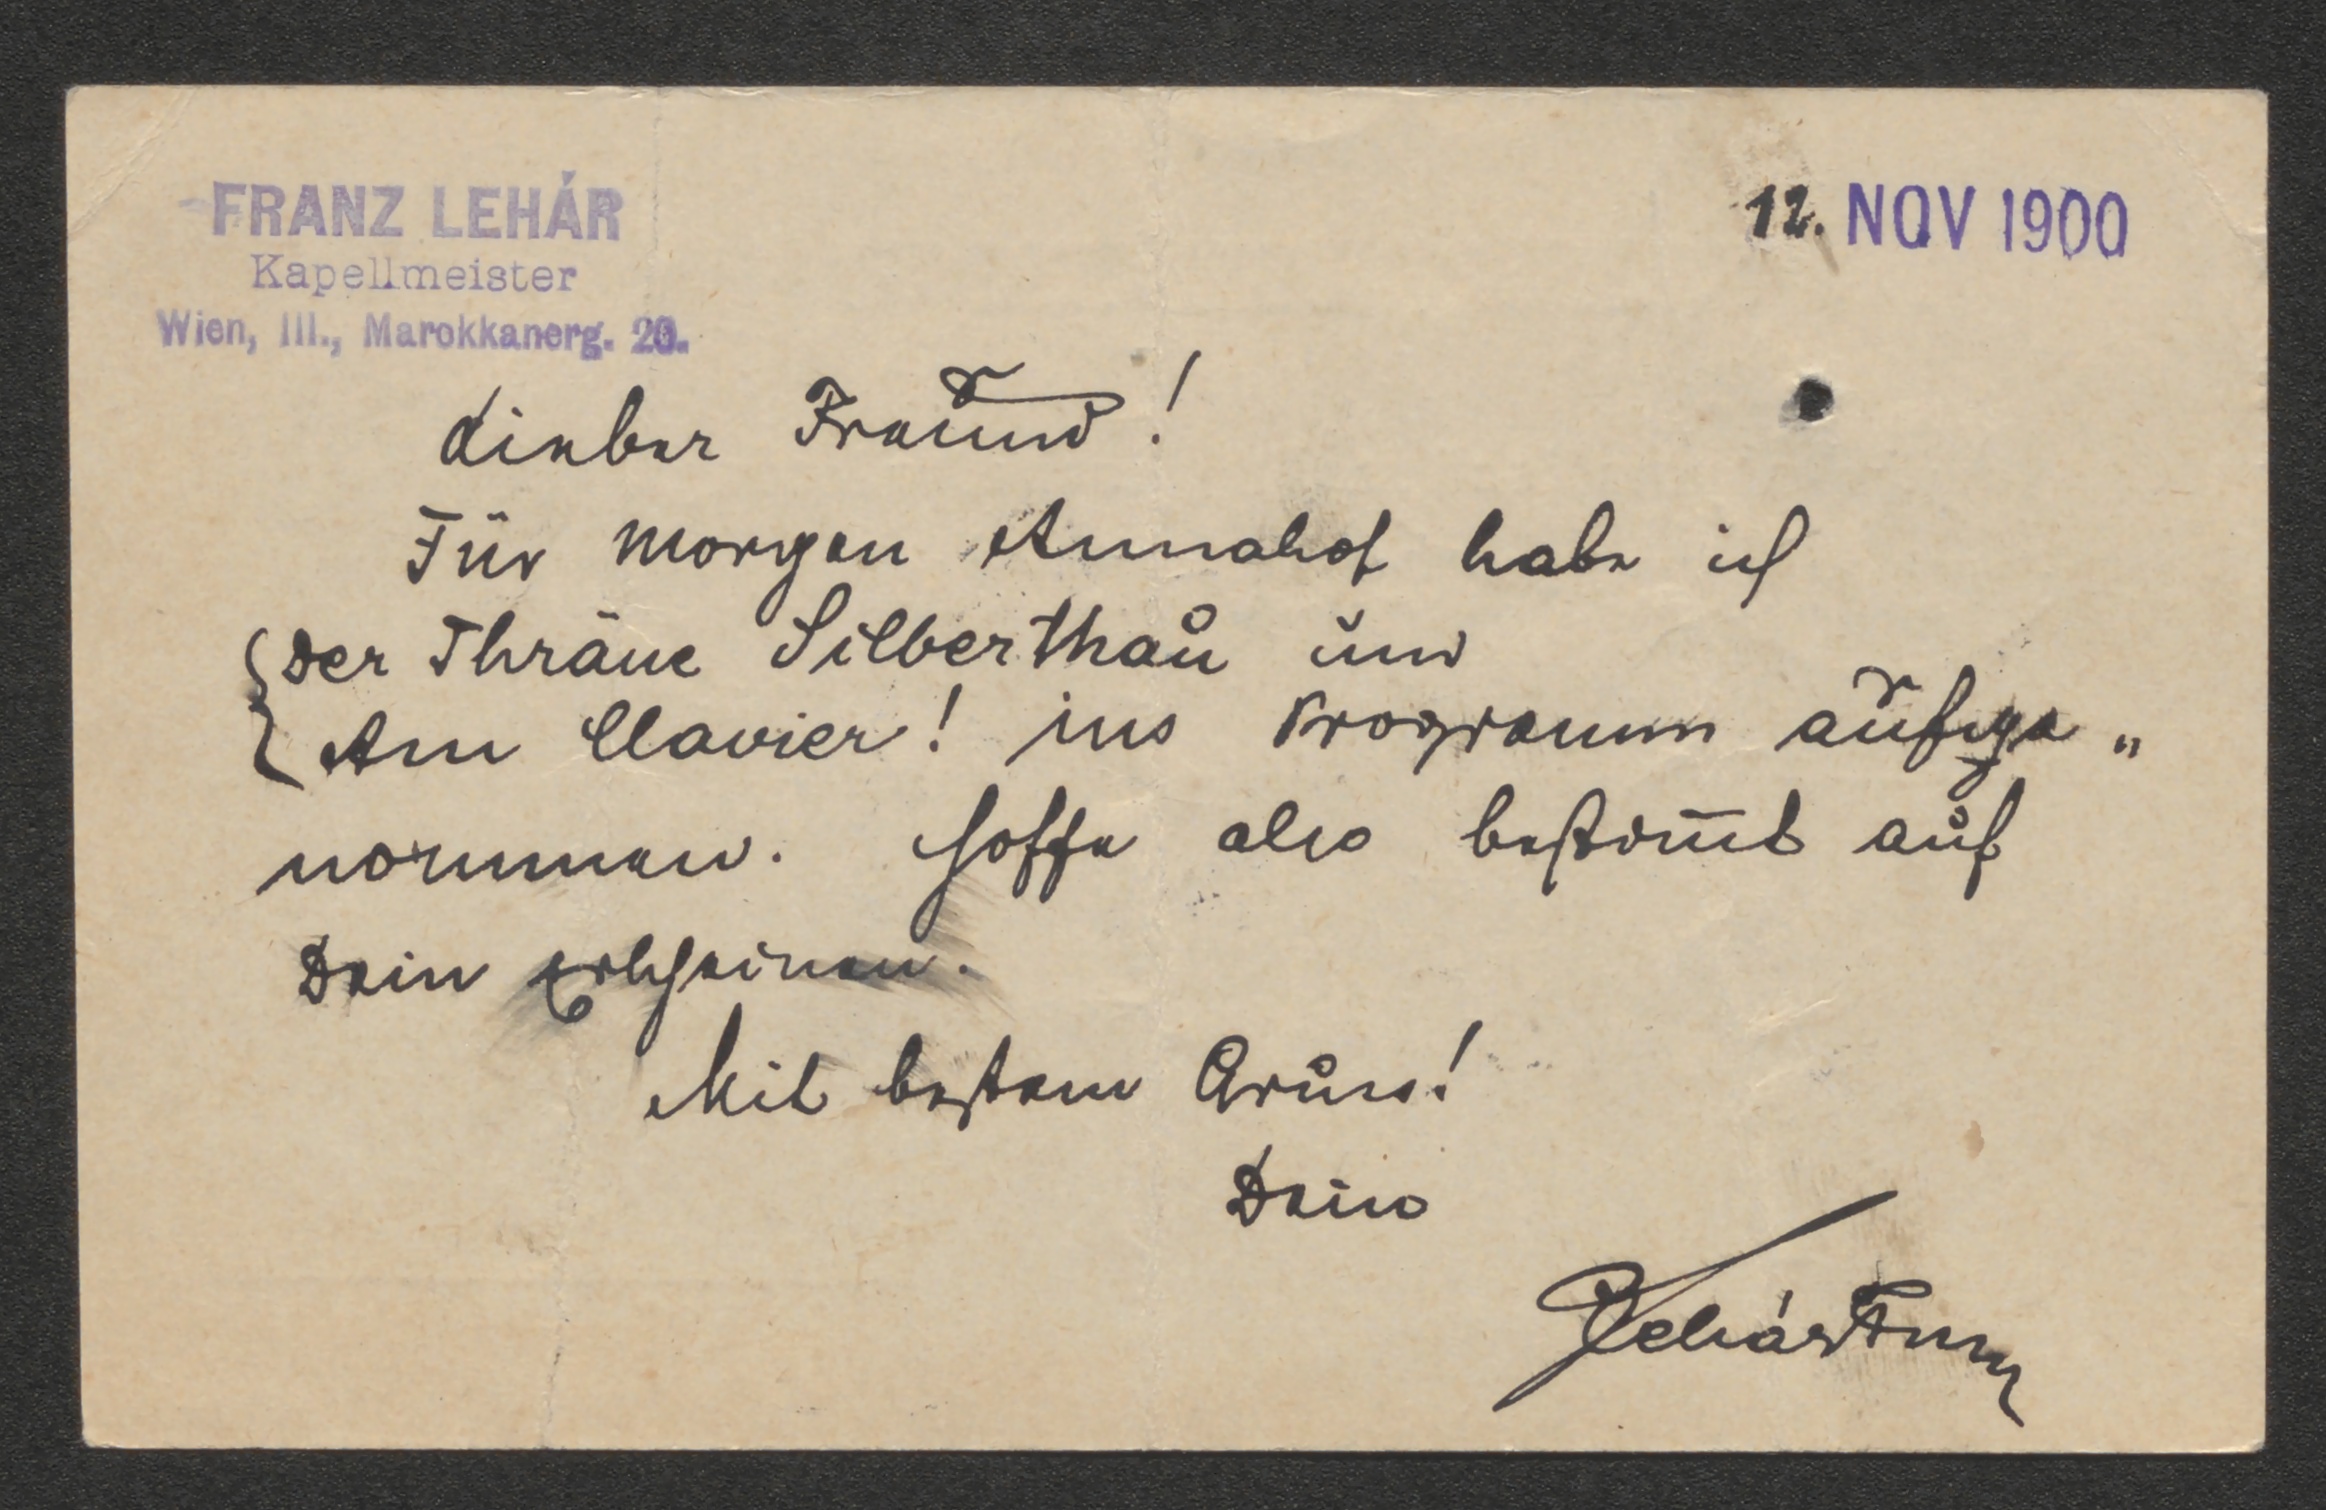 FRANZ LEHÁR
Kapellmeister
Wien, III., Marokkanerg. 20.
12. NOV 1900
Lieber Freund!
Für morgen Annahof habe ich
Der Thräne Silberthau und
Am Clavier! ins Programm aufge„
nommen. Hoffe also bestim̅t auf
Dein Erscheinen.
Mit bestem Gruss!
Dein
LehárFranz